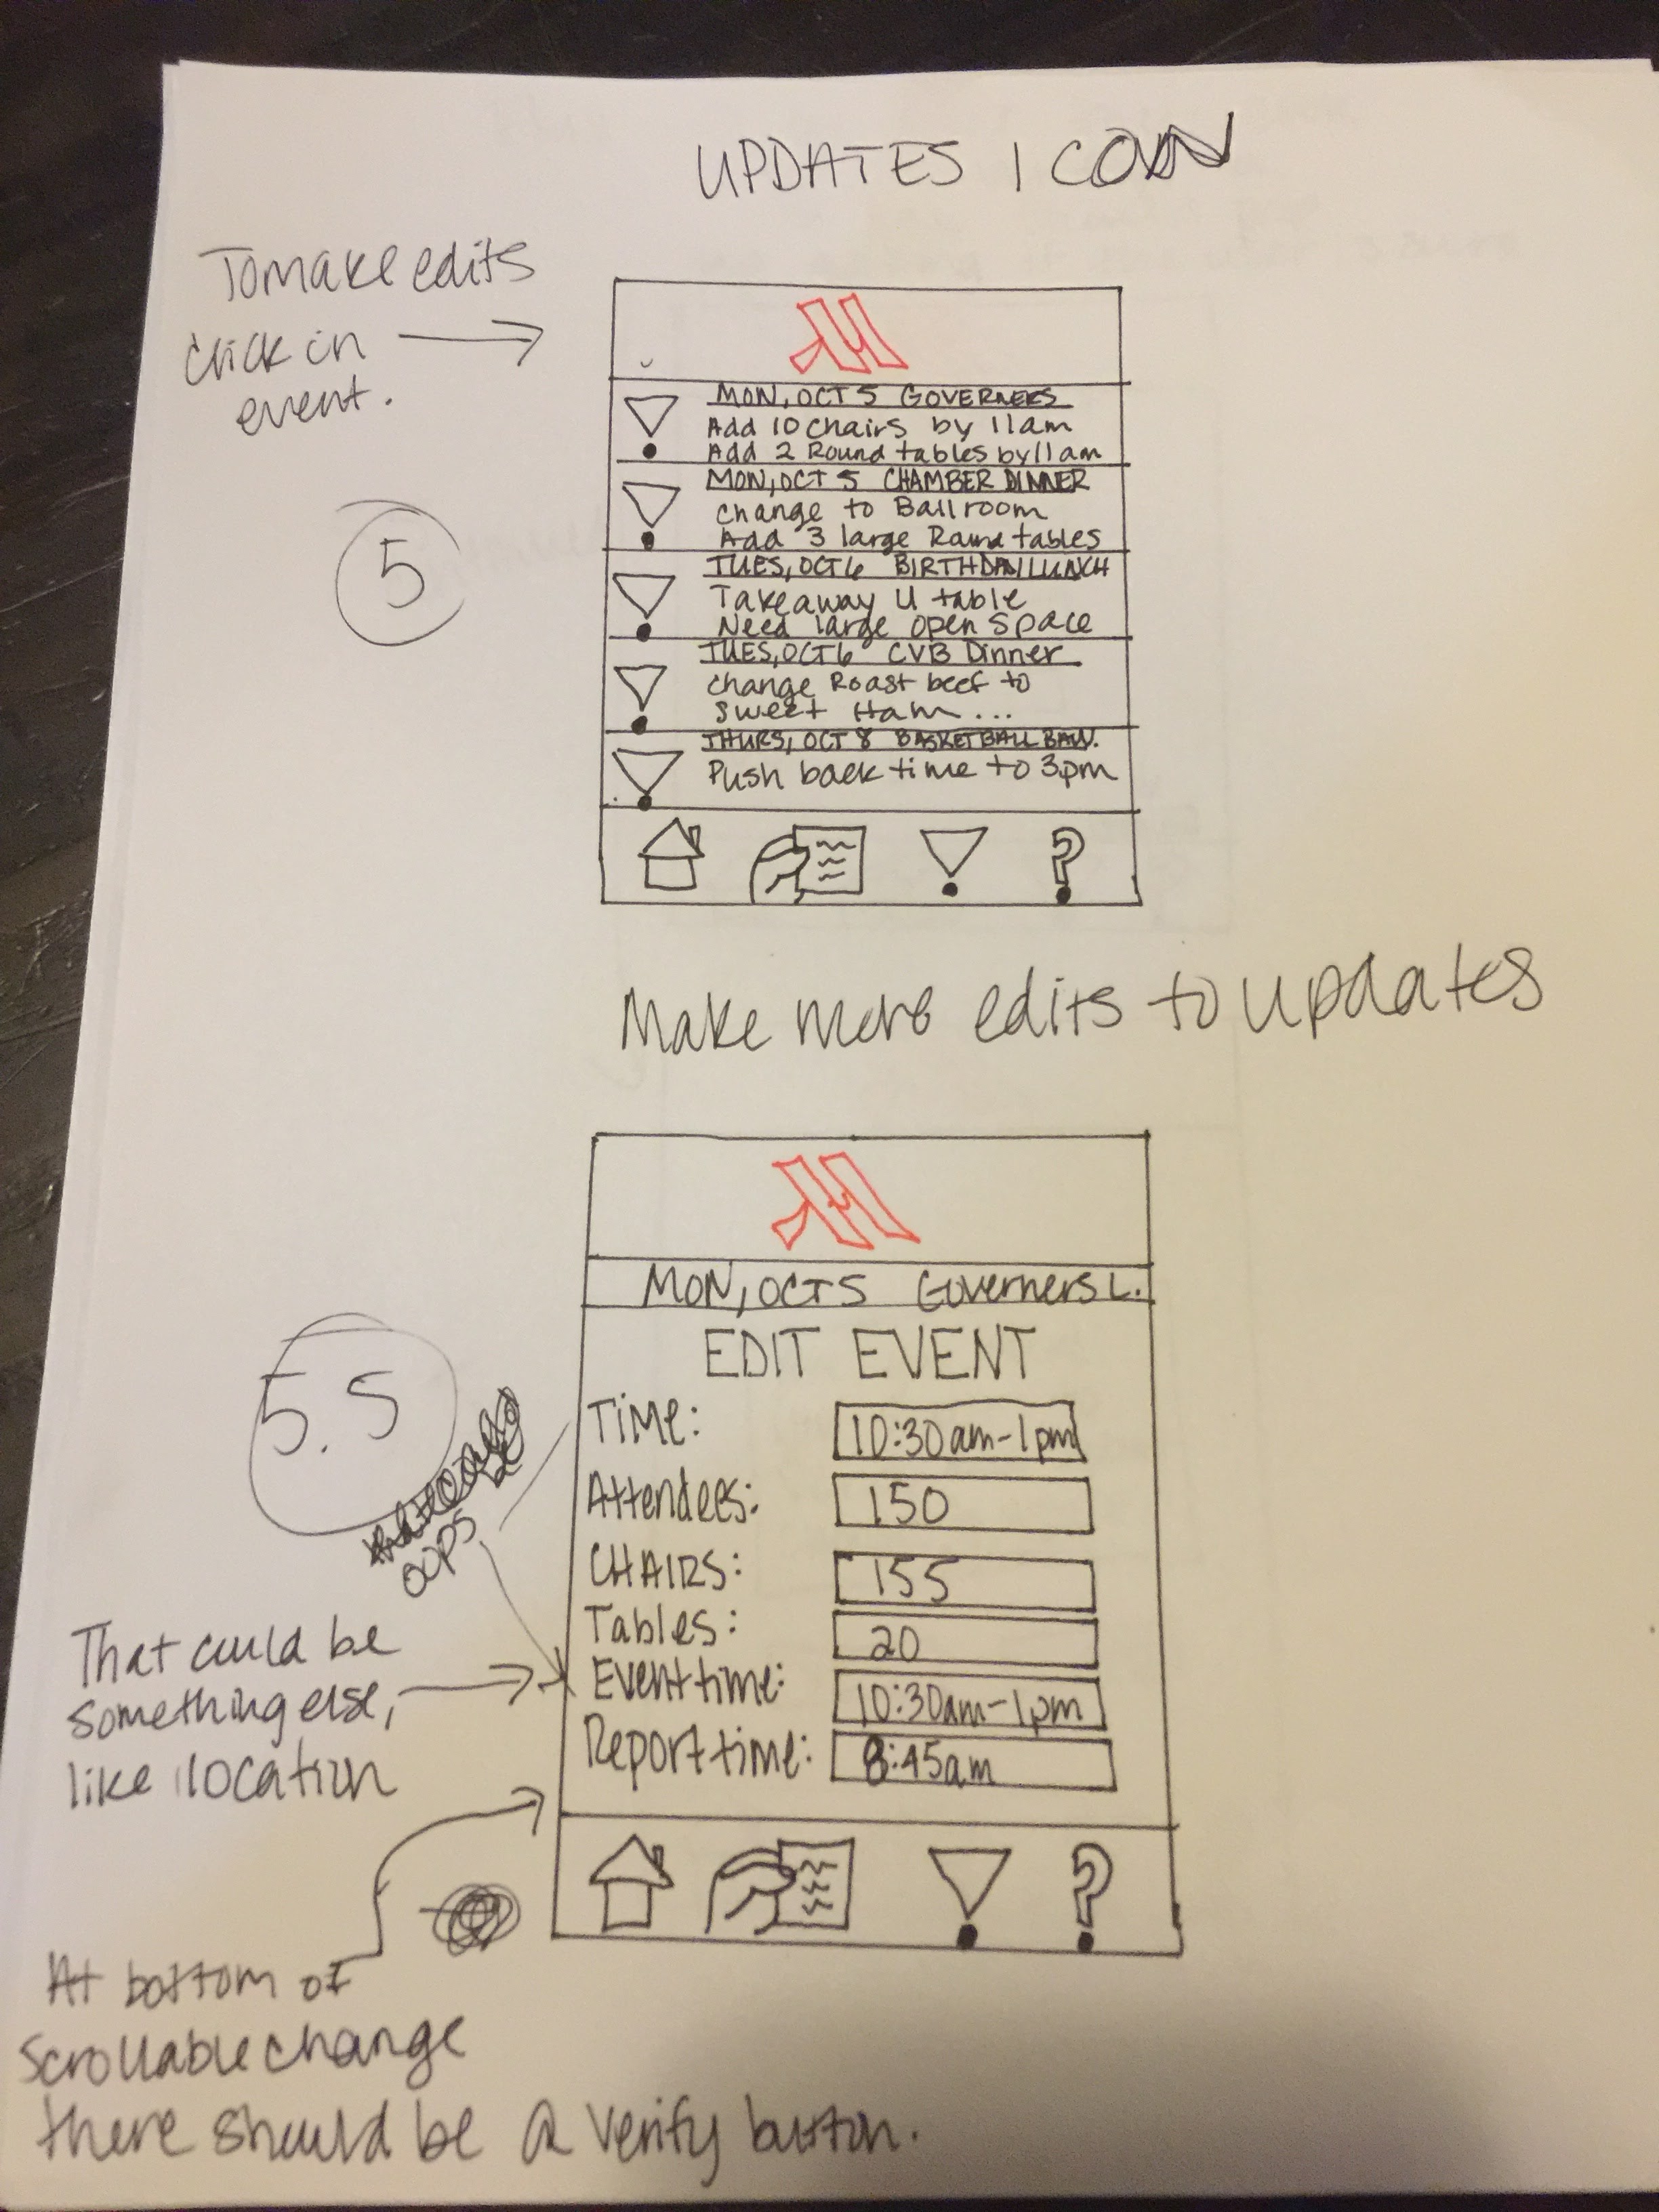 UPDATES ICON
To make edits
click in
event.
5
MON, OCT 5 GOVERNERS
Add 10 chairs by 11am
Add 2 Round tables by 11am
MON, OCT 5 CHAMBER DINNER
change to Ballroom
Add 3 large Round tables
TUES, OCT 6 BIRTHDAY LUNCH
Take away U table
Need large open space
TUES, OCT 6 CVB Dinner
change Roast beef to
sweet Ham...
THURS, OCT 8 BASKETBALL
Push back time to 3pm
?
Make more edits to updates
5.5
MON, OCT 5 Governers L.
EDIT EVENT
TIME: 10:30am-1pm
Attendees: 150
CHAIRS: 155
Tables: 20
Event time: 10:30am-1pm
Report time: 8:45am
?
oops
That could be
something else,
like location
At bottom of
scrollable change
there should be a verify button.